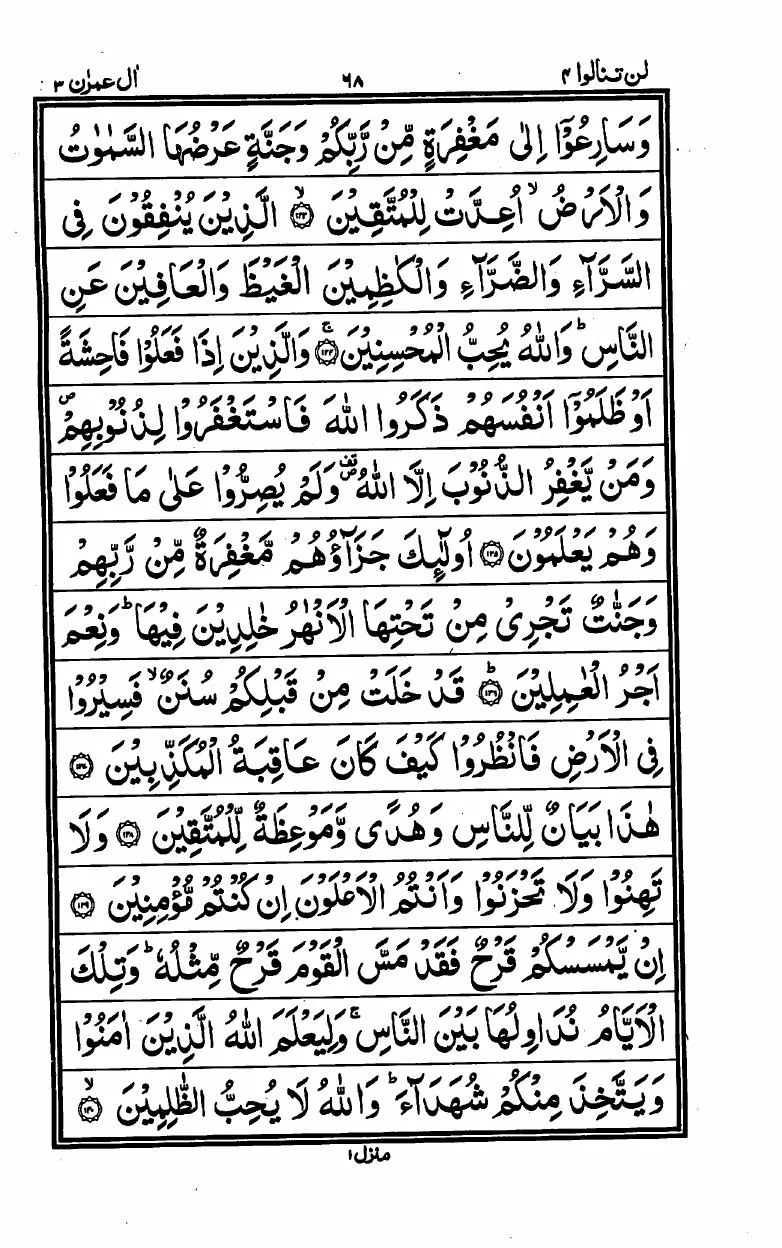 لن تنالوا ۴
۶۸
اٰل عمرٰن ۳
وَسَارِعُوْۤا اِلٰى مَغْفِرَةٍ مِّنْ رَّبِّكُمْ وَجَنَّةٍ عَرْضُهَا السَّمٰوٰتُ
وَالْاَرْضُ ۙ اُعِدَّتْ لِلْمُتَّقِيْنَ ۙ﴿۱۳۳﴾ الَّذِيْنَ يُنْفِقُوْنَ فِى
السَّرَّآءِ وَالضَّرَّآءِ وَالْكٰظِمِيْنَ الْغَيْظَ وَالْعَافِيْنَ عَنِ
النَّاسِ ؕ وَاللّٰهُ يُحِبُّ الْمُحْسِنِيْنَ ۚ﴿۱۳۴﴾ وَالَّذِيْنَ اِذَا فَعَلُوْا فَاحِشَةً
اَوْ ظَلَمُوْۤا اَنْفُسَهُمْ ذَكَرُوا اللّٰهَ فَاسْتَغْفَرُوْا لِذُنُوْبِهِمْ ۪
وَمَنْ يَّغْفِرُ الذُّنُوْبَ اِلَّا اللّٰهُ ۪ۖ وَلَمْ يُصِرُّوْا عَلٰى مَا فَعَلُوْا
وَهُمْ يَعْلَمُوْنَ ﴿۱۳۵﴾ اُولٰٓئِكَ جَزَآؤُهُمْ مَّغْفِرَةٌ مِّنْ رَّبِّهِمْ
وَجَنّٰتٌ تَجْرِىْ مِنْ تَحْتِهَا الْاَنْهٰرُ خٰلِدِيْنَ فِيْهَا ؕ وَنِعْمَ
اَجْرُ الْعٰمِلِيْنَ ؕ﴿۱۳۶﴾ قَدْ خَلَتْ مِنْ قَبْلِكُمْ سُنَنٌ ۙ فَسِيْرُوْا
فِى الْاَرْضِ فَانْظُرُوْا كَيْفَ كَانَ عَاقِبَةُ الْمُكَذِّبِيْنَ ﴿۱۳۷﴾
هٰذَا بَيَانٌ لِّلنَّاسِ وَهُدًى وَّمَوْعِظَةٌ لِّلْمُتَّقِيْنَ ﴿۱۳۸﴾ وَلَا
تَهِنُوْا وَلَا تَحْزَنُوْا وَاَنْتُمُ الْاَعْلَوْنَ اِنْ كُنْتُمْ مُّؤْمِنِيْنَ ﴿۱۳۹﴾
اِنْ يَّمْسَسْكُمْ قَرْحٌ فَقَدْ مَسَّ الْقَوْمَ قَرْحٌ مِّثْلُهٗ ؕ وَتِلْكَ
الْاَيَّامُ نُدَاوِلُهَا بَيْنَ النَّاسِ ۚ وَلِيَعْلَمَ اللّٰهُ الَّذِيْنَ اٰمَنُوْا
وَيَتَّخِذَ مِنْكُمْ شُهَدَآءَ ؕ وَاللّٰهُ لَا يُحِبُّ الظّٰلِمِيْنَ ۙ﴿۱۴۰﴾
منزل ۱